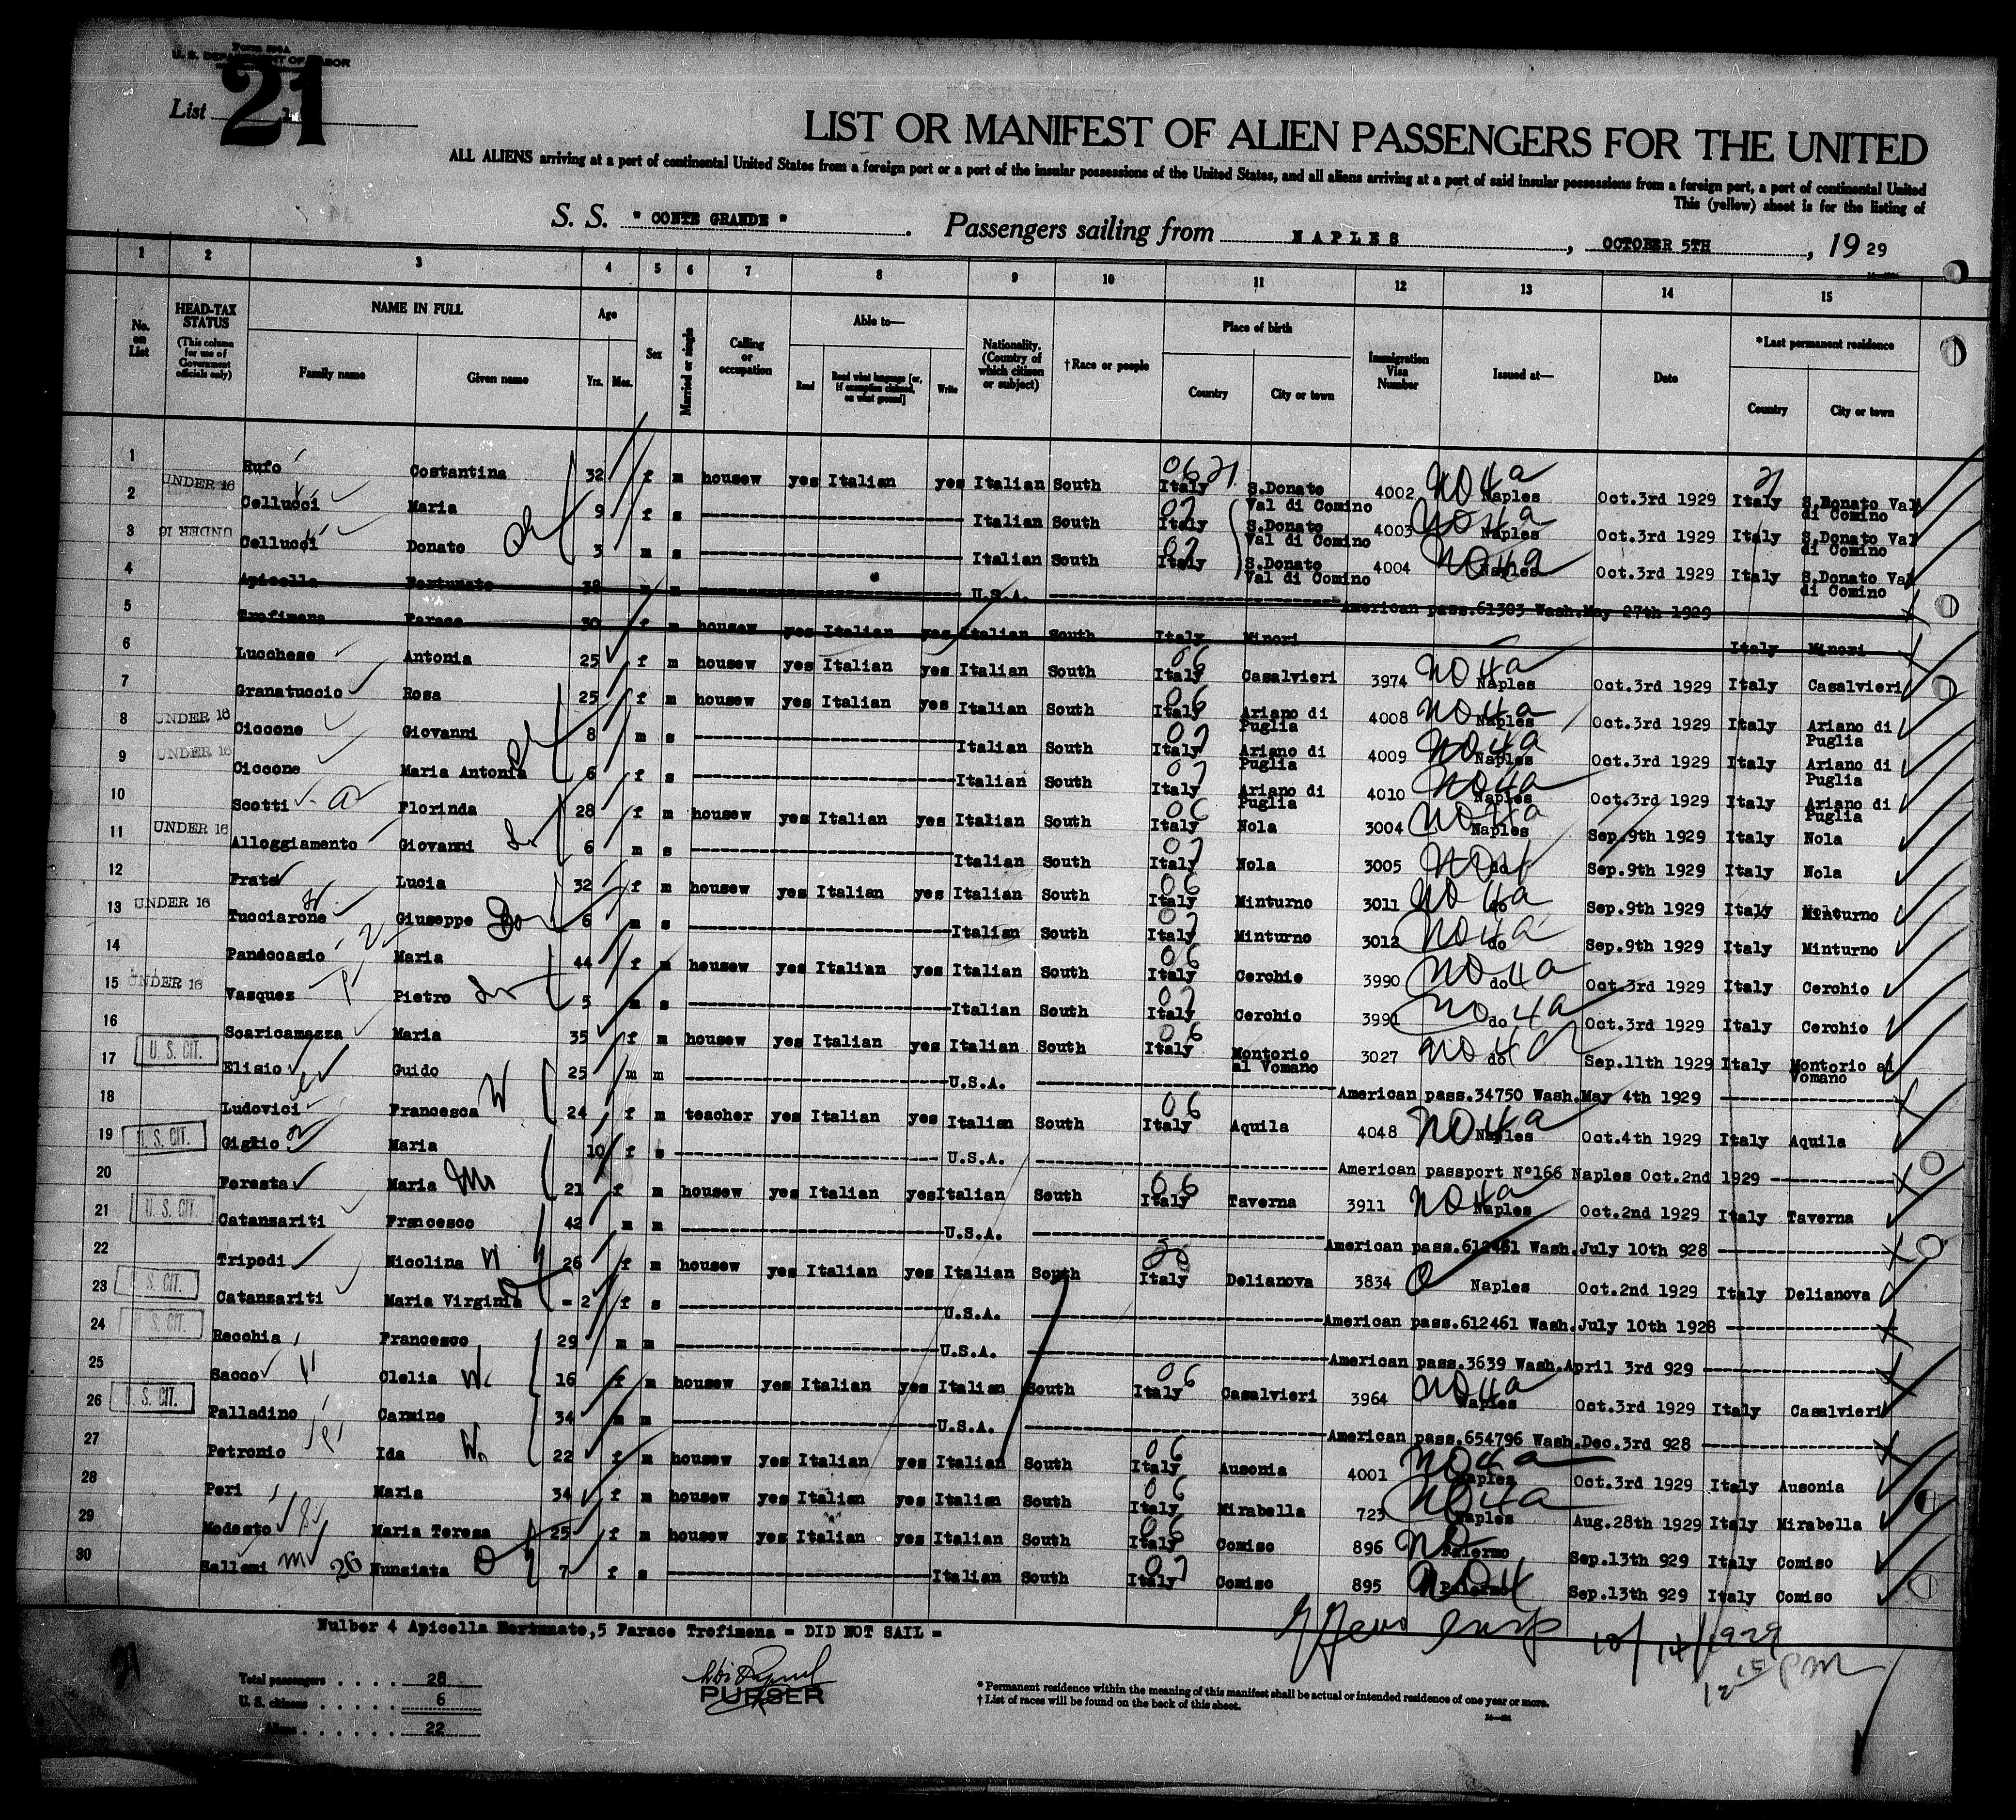 Form 500A
U. S. DEPARTMENT OF LABOR
List 21
LIST OR MANIFEST OF ALIEN PASSENGERS FOR THE UNITED
ALL ALIENS arriving at a port of continental United States from a foreign port or a port of the insular possessions of the United States, and all aliens arriving at a port of said insular possessions from a foreign port, a port of continental United
This (yellow) sheet is for the listing of
S. S. " CONTE GRANDE " . Passengers sailing from NAPLES , OCTOBER 5TH , 19 29
1 2 3 4 5 6 7 8 9 10 11 12 13 14 15
No. on List
HEAD-TAX STATUS (This column for use of Government officials only)
NAME IN FULL
Family name Given name
Age
Yrs. Mos.
Sex
Married or single
Calling or occupation
Able to—
Read Read what language [or, if exemption claimed, on what ground] Write
Nationality. (Country of which citizen or subject)
†Race or people
Place of birth
Country City or town
Immigration Visa Number
Issued at—
Date
*Last permanent residence
Country City or town
1 Rufo Costantina 32 f m housew yes Italian yes Italian South Italy S.Donato Val di Comino 4002 Naples Oct.3rd 1929 Italy S.Donato Val di Comino
2 UNDER 16 Cellucci Maria 9 f s Italian South Italy S.Donato Val di Comino 4003 Naples Oct.3rd 1929 Italy S.Donato Val di Comino
3 UNDER 16 Cellucci Donato 3 m s Italian South Italy S.Donato Val di Comino 4004 Naples Oct.3rd 1929 Italy S.Donato Val di Comino
4 Apicella Fortunato 38 m m U.S.A. American pass.61303 Wash.May 27th 1929
5 Trofimena Farace 30 f m housew yes Italian yes Italian South Italy Minori Italy Minori
6 Lucchese Antonia 25 f m housew yes Italian yes Italian South Italy Casalvieri 3974 Naples Oct.3rd 1929 Italy Casalvieri
7 Granatuccio Rosa 25 f m housew yes Italian yes Italian South Italy Ariano di Puglia 4008 Naples Oct.3rd 1929 Italy Ariano di Puglia
8 UNDER 16 Ciccone Giovanni 8 m s Italian South Italy Ariano di Puglia 4009 Naples Oct.3rd 1929 Italy Ariano di Puglia
9 UNDER 16 Ciccone Maria Antonia 6 f s Italian South Italy Ariano di Puglia 4010 Naples Oct.3rd 1929 Italy Ariano di Puglia
10 Scotti Florinda 28 f m housew yes Italian yes Italian South Italy Nola 3004 Naples Sep.9th 1929 Italy Nola
11 UNDER 16 Alloggiamento Giovanni 6 m s Italian South Italy Nola 3005 do Sep.9th 1929 Italy Nola
12 Frate Lucia 32 f m housew yes Italian yes Italian South Italy Minturno 3011 do Sep.9th 1929 Italy Minturno
13 UNDER 16 Tucciarone Giuseppe 6 m s Italian South Italy Minturno 3012 do Sep.9th 1929 Italy Minturno
14 Panecasio Maria 44 f m housew yes Italian yes Italian South Italy Cerchio 3990 do Oct.3rd 1929 Italy Cerchio
15 UNDER 16 Vasques Pietro 5 m s Italian South Italy Cerchio 3991 do Oct.3rd 1929 Italy Cerchio
16 Scaricamazza Maria 35 f m housew yes Italian yes Italian South Italy Montorio al Vomano 3027 do Sep.11th 1929 Italy Montorio al Vomano
17 U. S. CIT. Elisio Guido 25 m m U.S.A. American pass.34750 Wash.May 4th 1929
18 Ludovici Francesca 24 f m teacher yes Italian yes Italian South Italy Aquila 4048 Naples Oct.4th 1929 Italy Aquila
19 U. S. CIT. Giglio Maria 10 f s U.S.A. American passport N°166 Naples Oct.2nd 1929
20 Foresta Maria 21 f m housew yes Italian yes Italian South Italy Taverna 3911 Naples Oct.2nd 1929 Italy Taverna
21 U. S. CIT. Catanzariti Francesco 42 m m U.S.A. American pass.612461 Wash.July 10th 928
22 Tripodi Nicolina 26 f m housew yes Italian yes Italian South Italy Delianova 3834 Naples Oct.2nd 1929 Italy Delianova
23 U. S. CIT. Catanzariti Maria Virginia - 2 f s U.S.A. American pass.612461 Wash.July 10th 1928
24 U. S. CIT. Recchia Francesco 29 m m U.S.A. American pass.3639 Wash.April 3rd 929
25 Sacco Clelia 16 f m housew yes Italian yes Italian South Italy Casalvieri 3964 Naples Oct.3rd 1929 Italy Casalvieri
26 U. S. CIT. Palladino Carmine 34 m m U.S.A. American pass.654796 Wash.Dec.3rd 928
27 Petronio Ida 22 f m housew yes Italian yes Italian South Italy Ausonia 4001 Naples Oct.3rd 1929 Italy Ausonia
28 Peri Maria 34 f m housew yes Italian yes Italian South Italy Mirabella 723 Naples Aug.28th 1929 Italy Mirabella
29 Modesto Maria Teresa 25 f m housew yes Italian yes Italian South Italy Comiso 896 Palermo Sep.13th 929 Italy Comiso
30 Sallemi 26 Nunziata 7 f s Italian South Italy Comiso 895 Palermo Sep.13th 929 Italy Comiso
Nulber 4 Apicella Fortunato,5 Farace Trofimena = DID NOT SAIL =
10/14/1929
12 15 PM
Total passengers . . . . 28
U. S. citizens . . . . . 6
Aliens . . . . . . 22
PURSER
* Permanent residence within the meaning of this manifest shall be actual or intended residence of one year or more.
† List of races will be found on the back of this sheet.